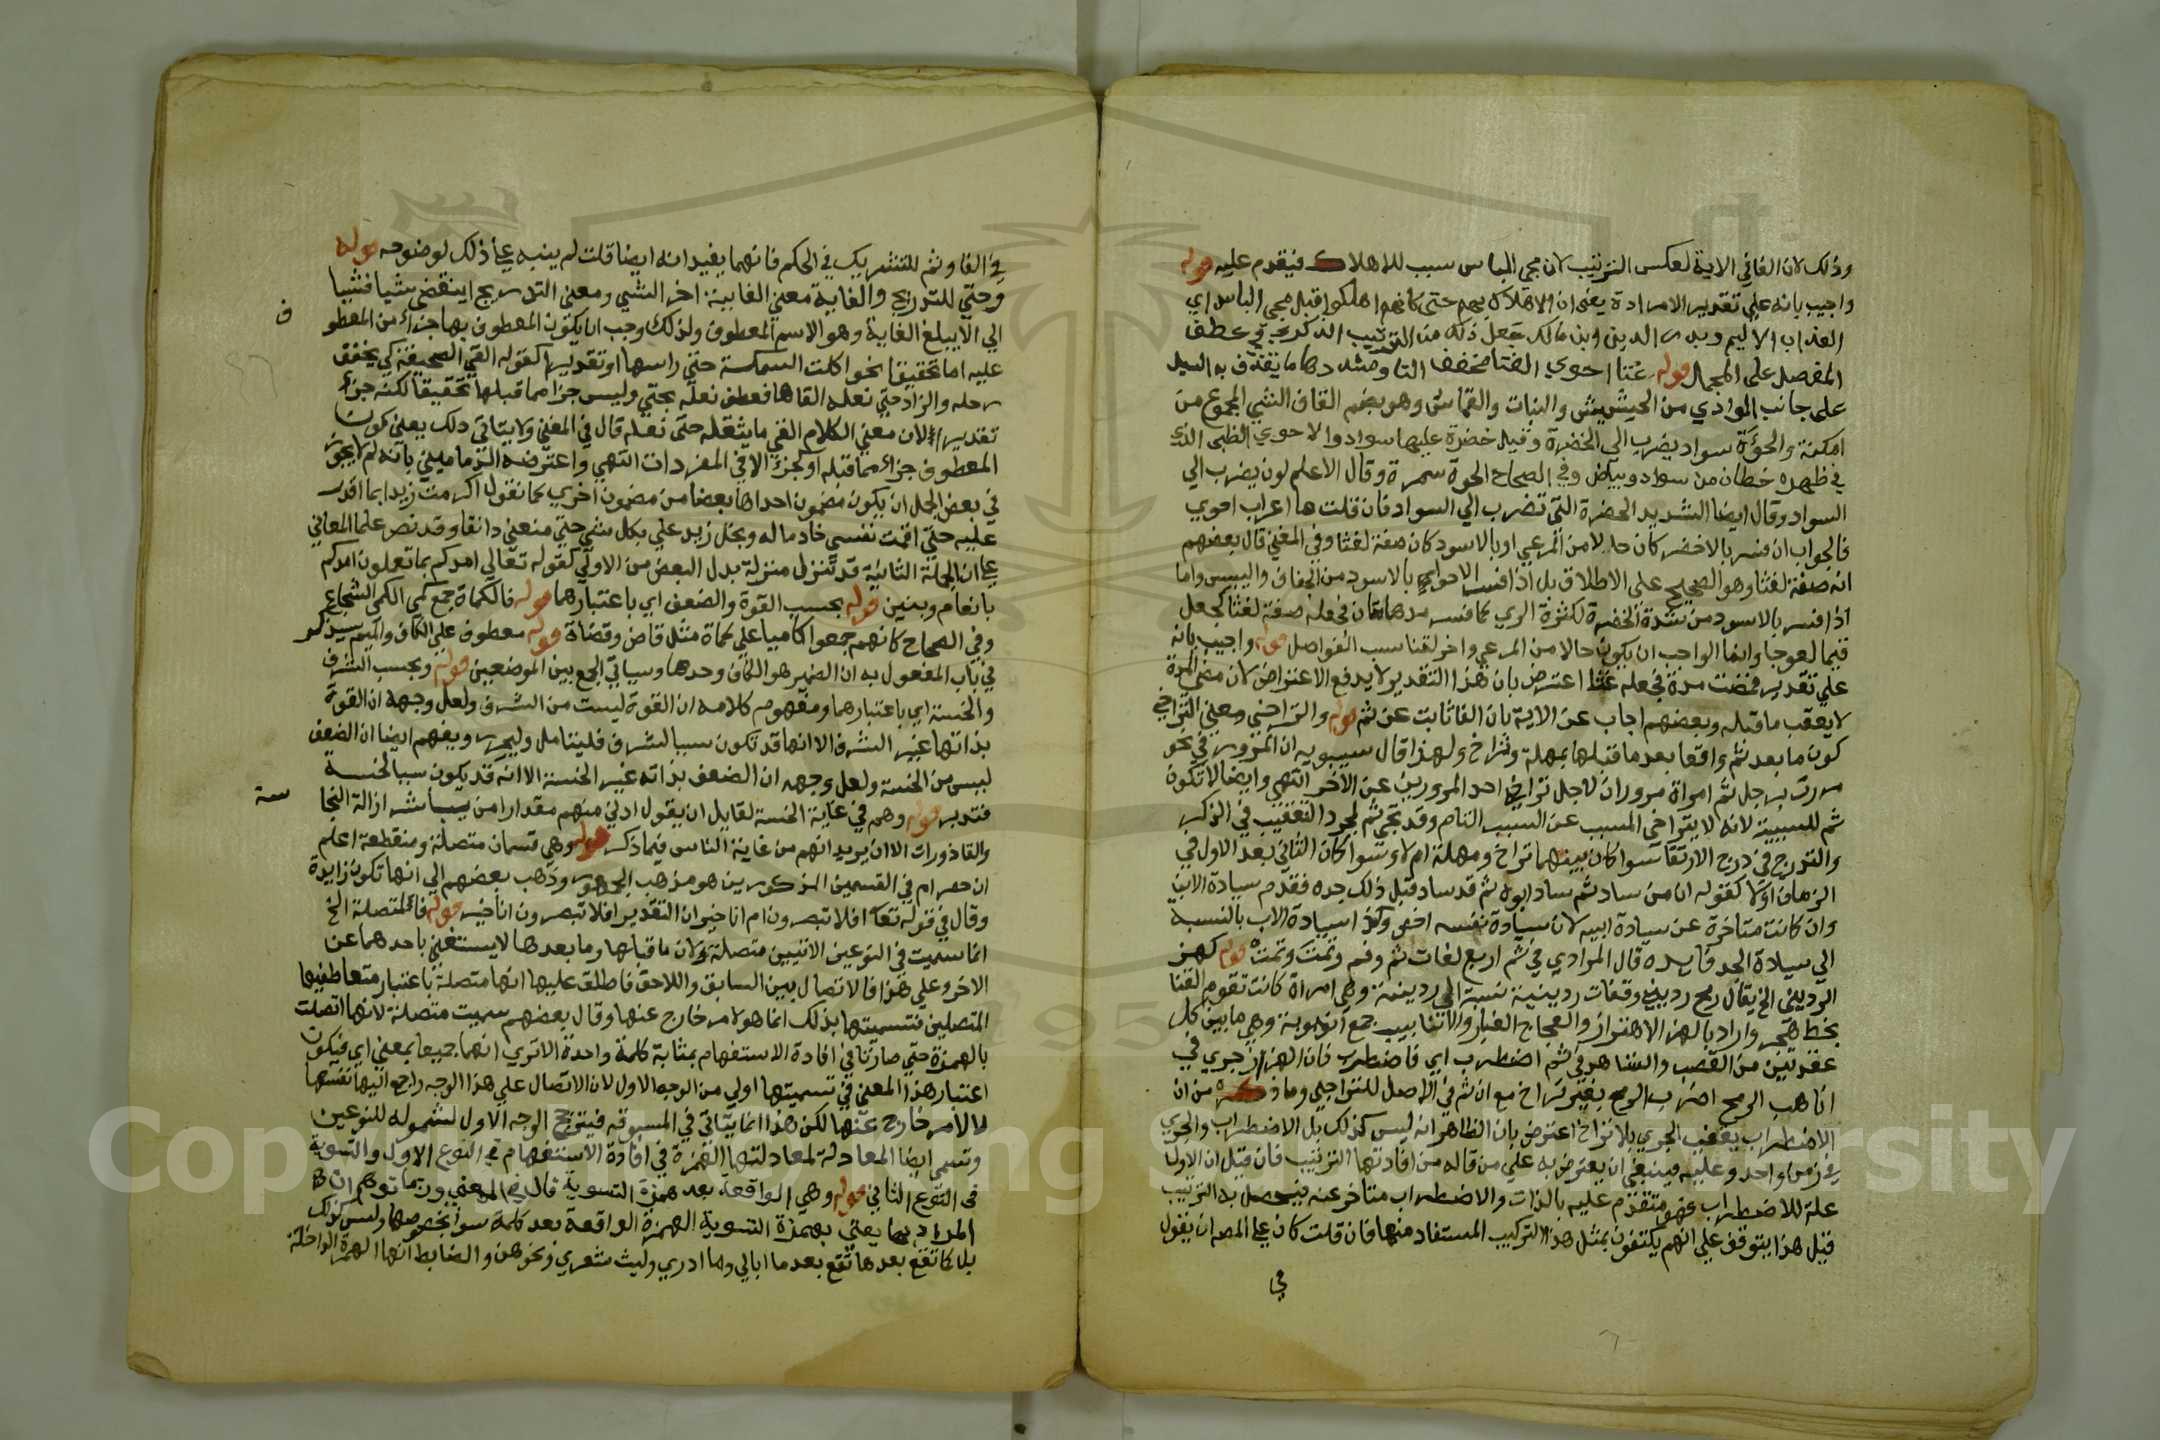 وذلك لان الفا في الاية لعكس الترتيب لان مجي الباس سبب للاهلاك فيقدم عليه قوله
واجيب بانه علي تقدير الارادة يعني ان الاهلاك يعم حتى كانهم اهلكوا قبل مجي الباس اي
العذاب الاليم وبدر الدين ابن مالك جعل ذلك من الترتيب الذكري في عطف
المفصل علي المجمل قوله غثا احوي الغثا مخفف الثا ومشددها ما يقذف به السيل
على جانب الوادي من الحشيش والنبات والقماش وهو بضم القاف الشي المجموع من
امكنة والحوة سواد يضرب الي الخضرة وقيل خضرة عليها سواد والاحوي الظبي الذي
في ظهره خطان من سواد وبياض وفي الصحاح الحوة سمرة وقال الاعلم لون يضرب الي
السواد وقال ايضا الشديد الخضرة التي تضرب الي السواد فان قلت ما اعراب احوي
فالجواب ان فسر بالاخضر كان حالا من المرعي او بالاسود كان صفة لغثا وفي المغني قال بعضهم
انه صفة لغثا وهو الصحيح على الاطلاق بل اذا فسر الاحوي بالاسود من الجفاف واليبس واما
اذا فسر بالاسود من شدة الخضرة لكثرة الري كما فسر مدهامتان فجعله صفة لغثا كجعل
قيما لعوجا وانما الواجب ان يكون حالا من المرعي واخر لتناسب الفواصل قوله واجيب بانه
علي تقدير فمضت مدة فجعله غثا اعترض بان هذا التقدير لا يدفع الاعتراض لان مضي المدة
لا يعقب ما قبله وبعضهم اجاب عن الاية بان الفا نابت عن ثم قوله والتراخي ومعني التراخي
كون ما بعد ثم واقعا بعد ما قبلها بمهلة وتراخ ولهذا قال سيبويه ان المرور في نحو
مررت برجل ثم امراة مروران لاجل تراخي احد المرورين عن الاخر انتهي وايضا لا تكون
ثم للسببية لانه لا يتراخي المسبب عن السبب التام وقد تجي ثم لمجرد التعقيب في الذكر
والتدرج في درج الارتقا سوا كان بينهما تراخ ومهلة ام لا وسوا كان الثاني بعد الاول في
الزمان او لا كقوله ان من ساد ثم ساد ابوه ثم قد ساد قبل ذلك جده فقدم سيادة الابن
وان كانت متاخرة عن سيادة ابيه لان سيادة نفسه اخص وكذا سيادة الاب بالنسبة
الي سيادة الجد فايدة قال المرادي في ثم اربع لغات ثم وفم وثمت وثمت قوله كهز
الرديني الخ يقال رمح رديني وقناة ردينية نسبة الي ردينة وهي امراة كانت تقوم القنا
بخط هجر واراد بالهز الاهتزاز والعجاج الغبار والانابيب جمع انبوبة وهي ما بين كل
عقدتين من القصب والشاهد في ثم اضطرب اي فاضطرب فان الهز اذا جري في
انابيب الرمح اضطرب الرمح بغير تراخ مع ان ثم في الاصل للتراخي وما ذكره من ان
الاضطراب يعقب الجري بلا تراخ اعترض بان الظاهر انه ليس كذلك بل الاضطراب والجري
في زمن واحد وعليه فينبغي ان يعترض به علي من قاله من افادتها الترتيب فان قيل ان الاول
علة للاضطراب فهو متقدم عليه بالذات والاضطراب متاخر عنه فيحصل به الترتيب
قيل هذا يتوقف علي انهم يكتفون بمثل هذا التركيب المستفاد منها فان قلت كان علي المصـ ان يقول
في
في الفا وثم للتشريك في الحكم فانهما يفيدانه ايضا قلت لم ينبه علي ذلك لوضوحه قوله
وحتي للتدريج والغاية معني الغاية اخر الشي ومعني التدريج اينقضي شيا فشيا
الي الا يبلغ الغاية وهو الاسم المعطوف ولذلك وجب ان يكون المعطوف بها جزأ من المعطو
ف
عليه اما تحقيقا نحو اكلت السمكة حتي راسها او تقديرا كقوله القي الصحيفة كي يخفف
رحله والزاد حتي نعله القاها فعطف نعله بحتي وليس جزا مما قبلها تحقيقا لكنه جزأ
تقديرا لان معني الكلام القي ما يثقله حتى نعله قال في المغني ولا يتاتي ذلك يعني كون
المعطوف جزأ مما قبله او كجزئه الا في المفردات انتهي واعترضه الدماميني بانه لم لا يجوز
في بعض الجمل ان يكون مضمون احداها بعضا من مضمون اخري كما تقول اكرمت زيدا بما اقدر
عليه حتي اقمت نفسي خادما له وبخل زيد علي بكل شي حتي منعني دانقا وقد نص علما المعاني
علي ان الجملة الثانية قد تنزل منزلة بدل البعض من الاولي كقوله تعالي امدكم بما تعلمون امدكم
بانعام وبنين قوله بحسب القوة والضعف اي باعتبارهما قوله فالكماة جمع كمي الكمي الشجاع
وفي الصحاح كانهم جمعوا كاميا علي كماة مثل قاض وقضاة قوله معطوف علي الكاف والميم سيذكر
في باب المفعول به ان الضمير هو الكاف وحدها وسياتي الجمع بين الموضعين قوله وبحسب الشرف
والخسة اي باعتبارهما ومفهوم كلامه ان القوة ليست من الشرف ولعل وجهه ان القوة
بذاتها غير الشرف الا انها قد تكون سببا لشرف فليتامل وليحرر ويفهم ايضا ان الضعف
ليس من الخسة ولعل وجهه ان الضعف بذاته غير الخسة الا انه قد يكون سببا لخسة
فتدبر قوله وهم في غاية الخسة لقايل ان يقول ادني منهم مقدارا من يباشر ازالة النجا
سة
والقاذورات الا ان يريد انهم من غاية الناس فيما ذكر قوله وهي قسمان متصلة ومنقطعة اعلم
ان حصر ام في القسمين المذكورين هو مذهب الجمهور وذهب بعضهم الي انها تكون زايدة
وقال في قوله تعا افلا تبصرون ام انا خير ان التقدير افلا تبصرون انا خير قوله فالمتصلة الخ
انما سميت في النوعين الاتيين متصلة لان ما قبلها وما بعدها لا يستغني باحدهما عن
الاخر وعلي هذا فالاتصال بين السابق واللاحق فاطلق عليها انها متصلة باعتبار متعاطفيها
المتصلين فتسميتها بذلك انما هو لامر خارج عنها وقال بعضهم سميت متصلة لانها اتصلت
بالهمزة حتي صارتا في افادة الاستفهام بمثابة كلمة واحدة الا تري انهما جميعا بمعني اي فيكون
اعتبار هذا المعني في تسميتها اولي من الوجه الاول لان الاتصال علي هذا الوجه راجع اليها نفسها
لا لامر خارج عنها لكن هذا انما يتاتي في المسبوقة فيترجح الوجه الاول لشموله للنوعين
وتسمي ايضا المعادلة لمعادلتها الهمزة في افادة الاستفهام في النوع الاول والتسوية
في النوع الثاني قوله وهي الواقعة بعد همزة التسوية قال في المغني وربما توهم ان
المراد بها يعني بهمزة التسوية الهمزة الواقعة بعد كلمة سوا بخصوصها وليس كذلك
بل كما تقع بعدها تقع بعد ما ابالي وما ادري وليت شعري ونحوهن والضابط انها الهمزة الداخلة